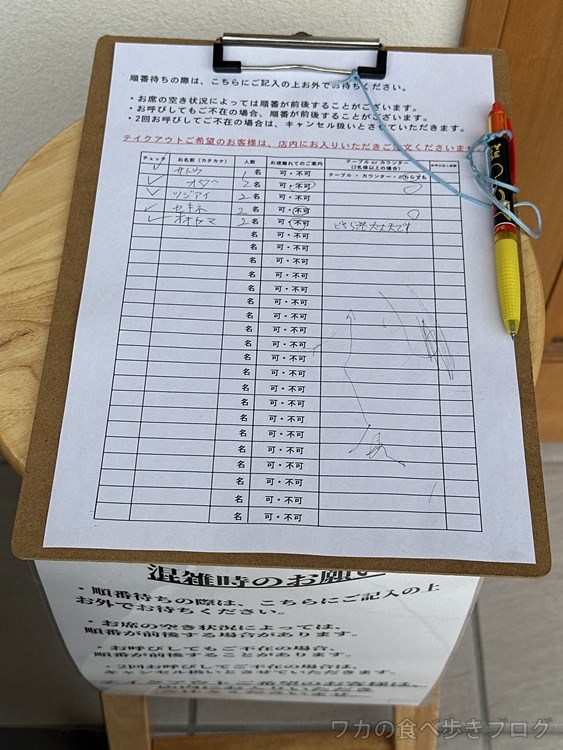 順番待ちの際は、こちらにご記入の上お外でお待ちください。
・お席の空き状況によっては順番が前後することがございます。
・お呼びしてもご不在の場合、順番が前後することがございます。
・2回お呼びしてご不在の場合は、キャンセル扱いとさせていただきます。
テイクアウトご希望のお客様は、店内にお入りいただきご注文くださいませ
チェック お名前(カタカナ) 人数 お席離れてのご案内 テーブル or カウンター
(2名様以上の場合)
サトウ 1名 可・不可 テーブル ・ カウンター ・ どちらでも
オタベ 2名 可・不可
ツジアイ 2名 可・不可
セキネ 2名 可・不可
2名 可・不可 どちらでも大丈夫です
名 可・不可
名 可・不可
名 可・不可
名 可・不可
名 可・不可
名 可・不可
名 可・不可
名 可・不可
名 可・不可
名 可・不可
名 可・不可
名 可・不可
名 可・不可
名 可・不可
名 可・不可
名 可・不可
名 可・不可
名 可・不可
名 可・不可
名 可・不可
混雑時のお願い
・順番待ちの際は、こちらにご記入の上
お外でお待ちください。
・お席の空き状況によっては、
順番が前後する場合があります。
・お呼びしてもご不在の場合、
順番が前後することがあります。
・2回お呼びしてご不在の場合は、
キャンセル扱いとさせていただきます。
テイクアウトご希望のお客様は、
店内にお入りいただき
ワカの食べ歩きブログ